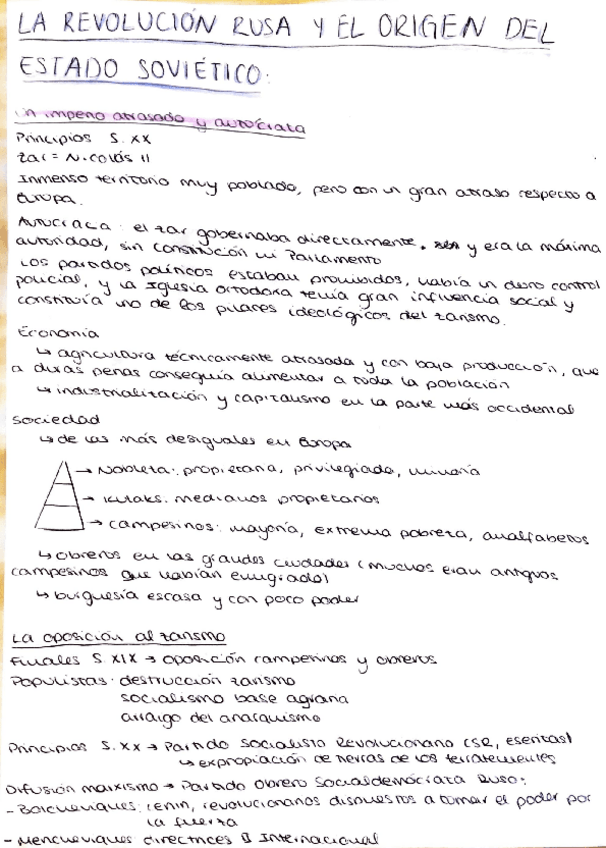 LA REVOLUCIÓN RUSA Y EL ORIGEN DEL
ESTADO SOVIÉTICO:
Un imperio atrasado y autócrata
Principios S. XX
Zar = Nicolás II
Inmenso territorio muy poblado, pero con un gran atraso respecto a
Europa.
Autocracia: el zar gobernaba directamente, y era la máxima
autoridad, sin constitución ni Parlamento
Los partidos políticos estaban prohibidos, había un duro control
policial, y la Iglesia ortodoxa tenía gran influencia social y
constituía uno de los pilares ideológicos del zarismo.
Economía
↳ agricultura técnicamente atrasada y con baja producción, que
a duras penas conseguía alimentar a toda la población
↳ industrialización y capitalismo en la parte más occidental
Sociedad
↳ de las más desiguales en Europa
→ Nobleza: propietaria, privilegiada, minoría
→ kulaks: medianos propietarios
→ campesinos: mayoría, extrema pobreza, analfabetos
↳ obreros en las grandes ciudades (muchos eran antiguos
campesinos que habían emigrado)
↳ burguesía escasa y con poco poder
La oposición al zarismo
Finales S. XIX → oposición campesinos y obreros
Populistas: destrucción zarismo
socialismo base agraria
arraigo del anarquismo
Principios S. XX → Partido Socialista Revolucionario (SR, eseritas)
↳ expropiación de tierras de los terratenientes
Difusión marxismo → Partido Obrero Socialdemócrata Ruso:
- Bolcheviques: Lenin, revolucionarios dispuestos a tomar el poder por
la fuerza
- Mencheviques: directrices II Internacional